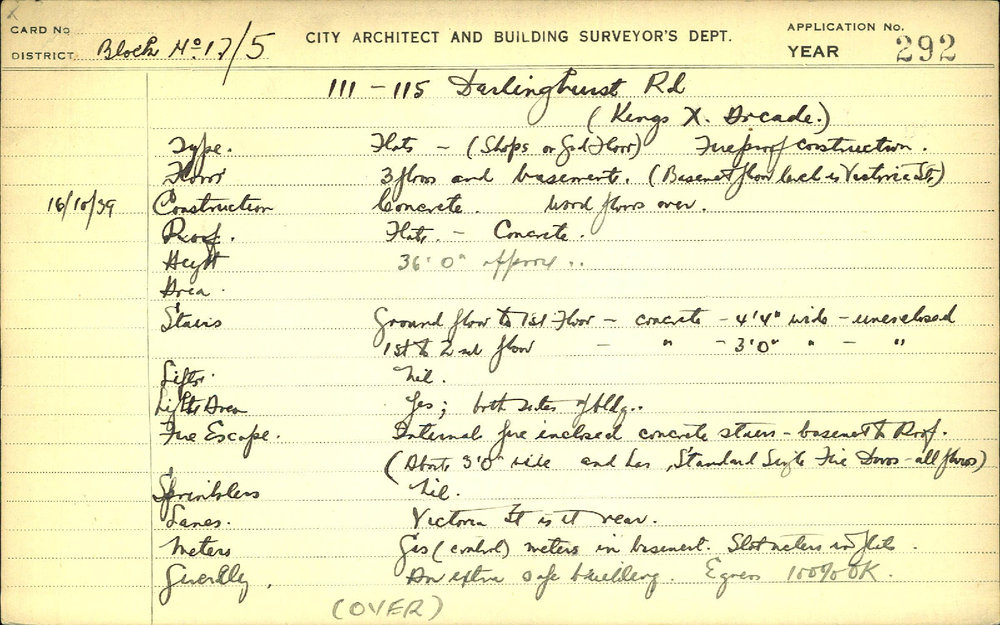 CARD No
DISTRICT Block No 17/5
CITY ARCHITECT AND BUILDING SURVEYOR'S DEPT.
APPLICATION No.
YEAR 292
111 - 115 Darlinghurst Rd
(Kings X. Arcade.)
Type. Flats - (Shops on Gd Floor) Fireproof construction.
Floors 3 floors and basement. (Basemet floor level is Victoria St)
16/10/39 Construction Concrete. Wood floors over.
Roof. Flat. - Concrete.
Height 36'0" approx..
Area.
Stairs Ground floor to 1st Floor - concrete - 4'4" wide - unenclosed
1st to 2nd floor - " - 3'0" " - "
Lifts. Nil.
Lights Area Yes; both sides of bldg..
Fire Escape. Internal fire inclosed concrete stairs - basemet to Roof.
(About 3'0" wide and has Standard Single Fire Doors - all floors)
Sprinklers Nil.
Lanes. Victoria St is at rear.
Meters Gas (control) meters in basement. Slot meters in flats.
Generally. An extra safe building. Egress 100% OK.
(OVER)